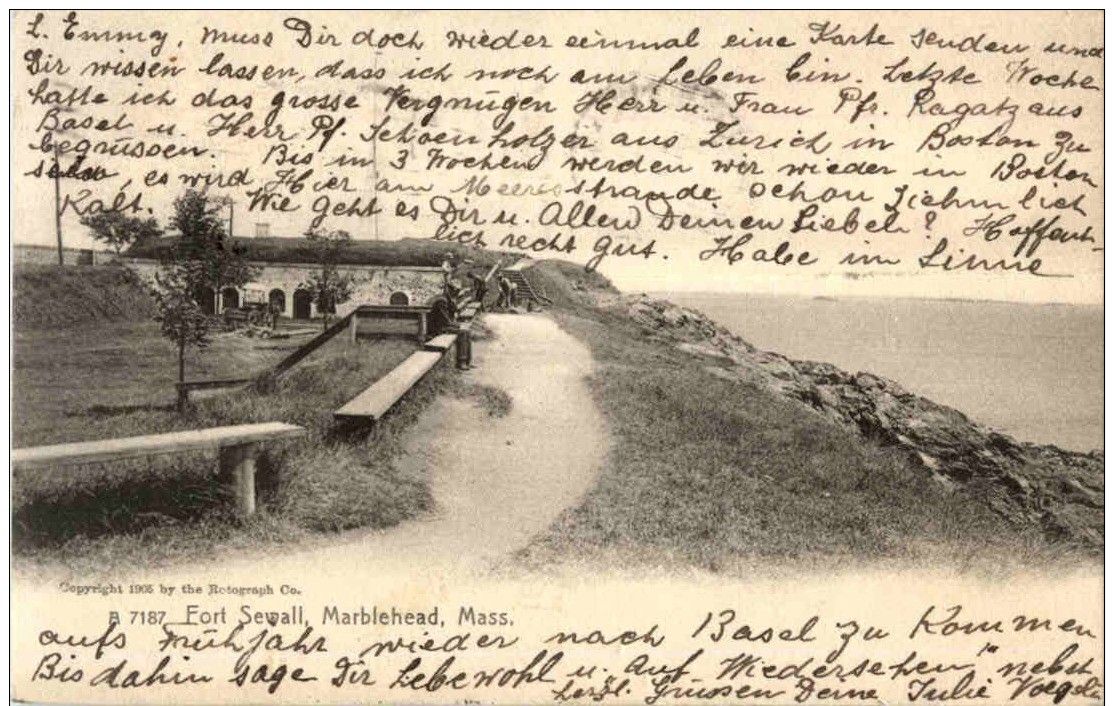 L. Emmy, muss Dir doch wieder einmal eine Karte senden und
Dir wissen lassen, dass ich noch am Leben bin. Letzte Woche
hatte ich das grosse Vergnügen Herr u. Frau Pfr. Ragatz aus
Basel u. Herr Pf. Schoenholzer aus Zürich in Boston zu
begrüssen. Bis in 3 Wochen werden wir wieder in Boston
sein, es wird Hier am Meeresstrande schon ziehmlich
Kalt. Wie geht es Dir u. Allen Deinen Lieben? Hoffent-
lich recht gut. Habe im Sinne
Copyright 1905 by the Rotograph Co.
B 7187 Fort Sewall, Marblehead, Mass.
aufs Frühjahr wieder nach Basel zu Kommen
Bis dahin sage Dir Lebewohl u. "Auf Wiedersehen" nebst
herzl. Grüssen Deine Julie Voegeli